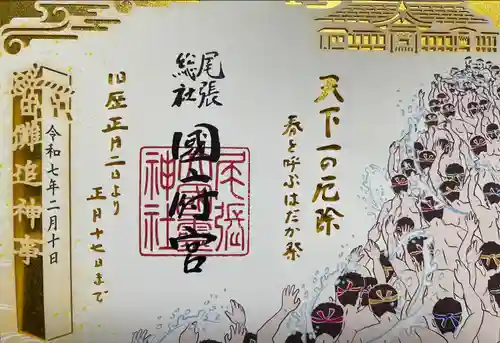 天下一の厄除
春を呼ぶはだか祭
尾張
総社
國府宮
神社
旧暦 正月二日より
正月十七日まで
令和七年二月十日
儺追神事